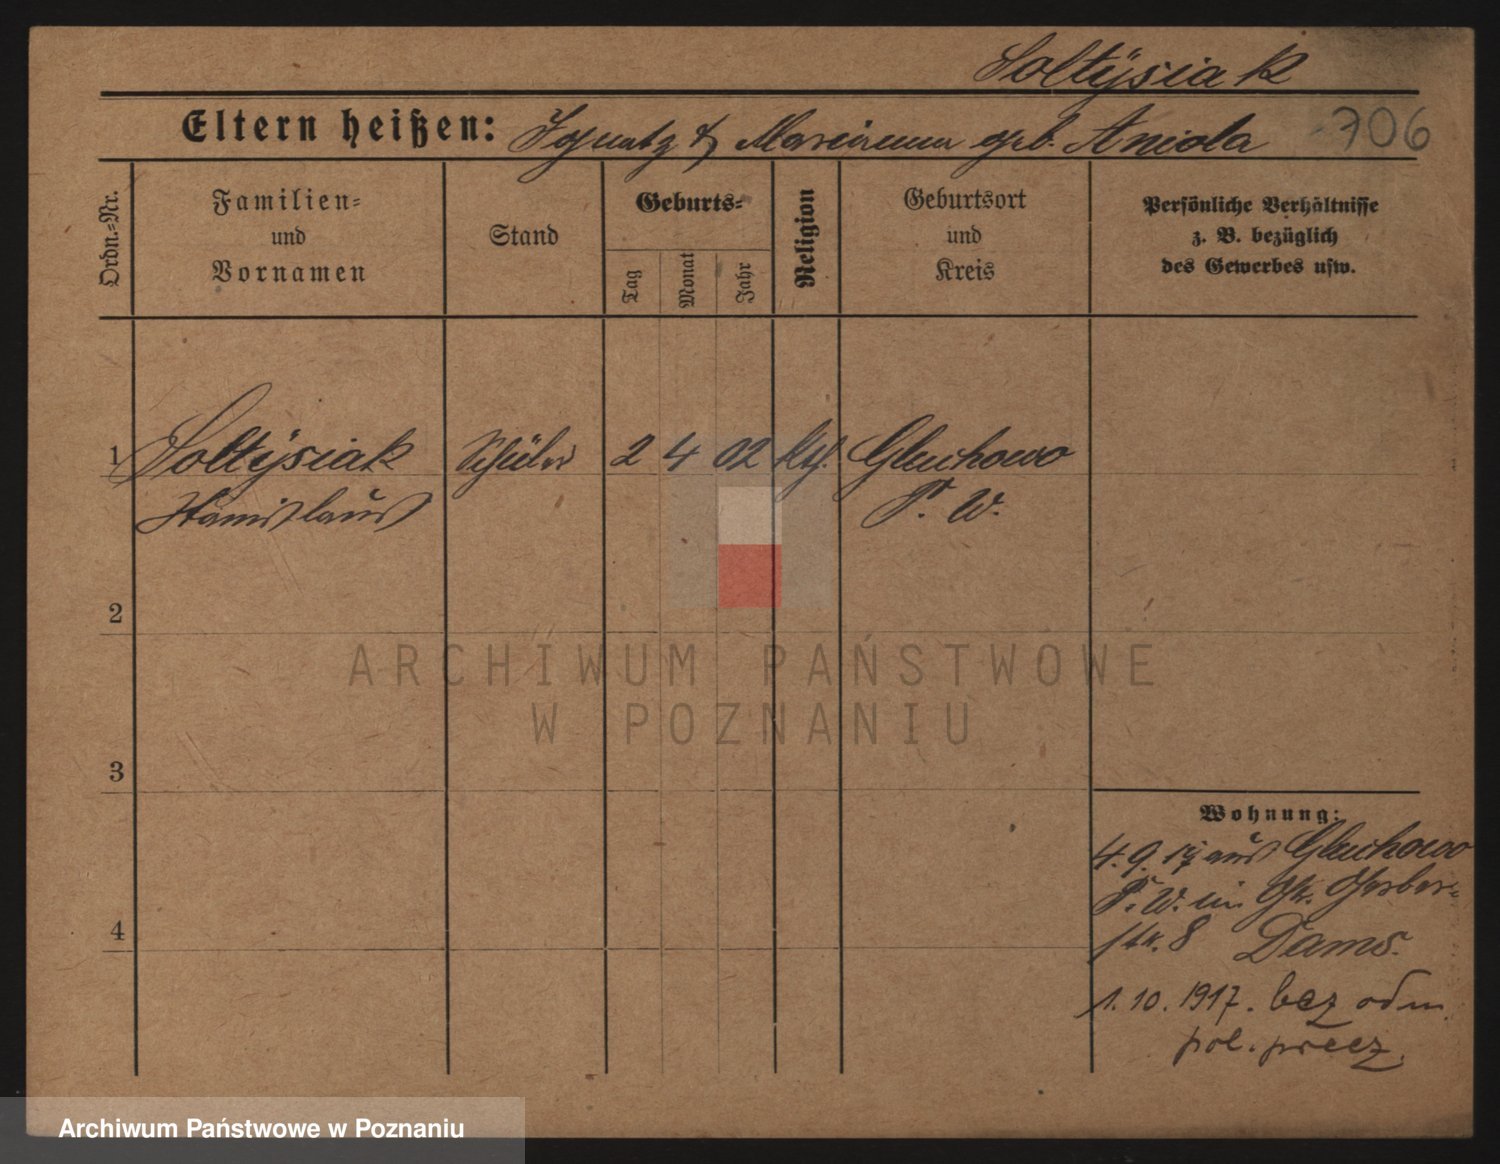 Soltÿsiak
Eltern heißen: Ignatz & Marianna geb. Aniola 706
Ordn.-Nr.
Familien-
und
Vornamen
Stand
Geburts-
Tag
Monat
Jahr
Religion
Geburtsort
und
Kreis
Persönliche Verhältnisse
z. B. bezüglich
des Gewerbes usw.
1 Soltÿsiak Schüler 2 4 02 kth. Gluchowo
Stanislaus P. W.
2
ARCHIWUM PAŃSTWOWE
W POZNANIU
3
Wohnung:
4. 9. 17 aus Gluchowo
P. W. in Gr. Gerber-
4
str. 8 Dams.
1. 10. 1917. bez odm
pol. precz.
Archiwum Państwowe w Poznaniu